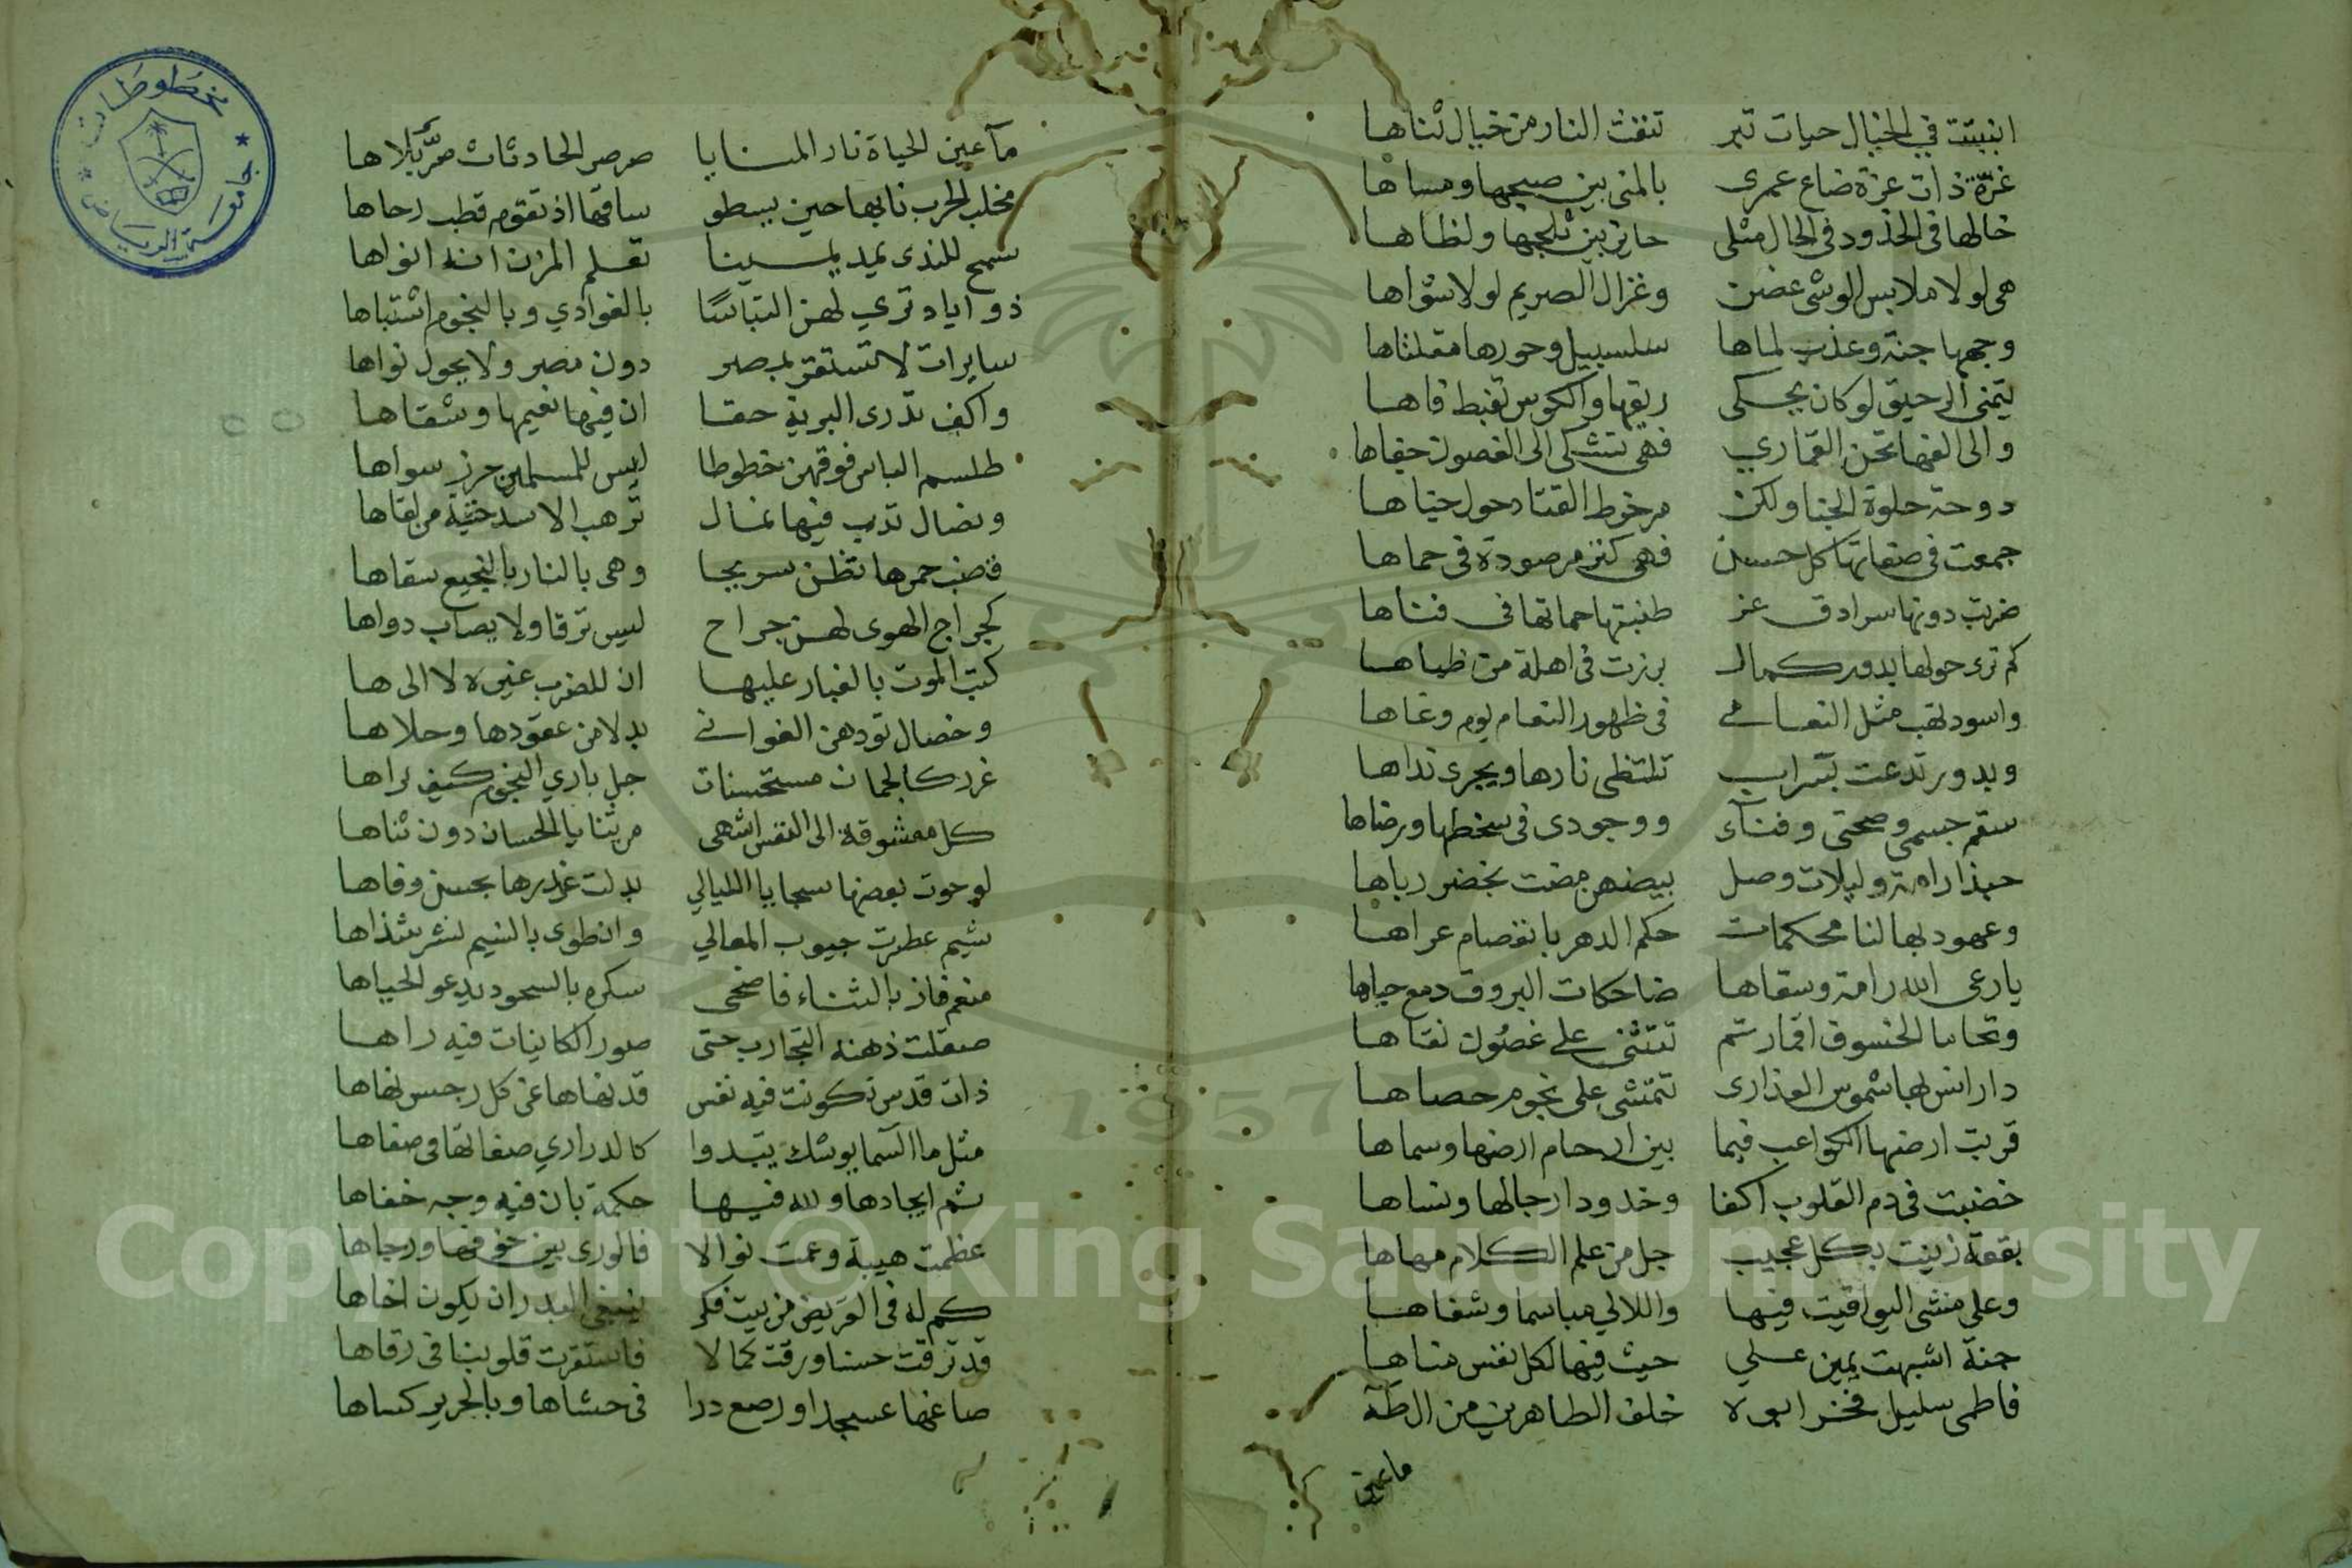 انبتت في الخيال حيات تبر تنفث النار من خيال ثناها
غرّة ذات عزة ضاع عمرى بالمنى بين صبحها ومساها
خالها فى الخدود فى الحال مثلى حاير بين ثلجها ولظاها
هى لولا ملابس الوشى غصن وغزال الصريم لولا شواها
وجهها جنة وعذب لماها سلسبيل وحورها مقلتاها
يتمنى الرحيق لو كان يحكى ريقها والكوس تغبط فاها
والى الفها تحن القماري فهى تشكى الى الغصون جفاها
دوحة حلوة الجنا ولكن من خوط القتاد حول جناها
جمعت فى صفاتها كل حسن فهى كنز مرصودة فى حماها
ضربت دونها سرادق عز طنبتها حماتها فى فناها
كم ترى حولها بدور كمال برزت فى اهلة من ظباها
واسود تهب مثل النعامى فى ظهور النعام يوم وغاها
وبدور تدعت بسراب تلتظى نارها ويجرى نداها
سقم جسمي وصحتى وفنآء ووجودى فى سخطها ورضاها
حبذا رامة وليلات وصل بيضهن مضت بخضر رباها
وعهود بها لنا محكمات حكم الدهر بانفصام عراها
يا رعى الله رامة وسقاها ضاحكات البروق دمع حياها
وتحاما الخسوف اقمار تم تتثنى على غصون نقاها
دار انس بها شموس العذارى تتمشى على نجوم حصاها
قربت ارضها الكواعب فيما بين ارحام ارضها وسماها
خضبت فى دم القلوب اكفا وخدودا رجالها ونساها
بقعة زينت بكل عجيب جل من علم الكلام مهاها
وعلى منشى اليواقيت فيها واللالي مباسما وشفاها
جنة اشبهت يمين على حيث فيها لكل نفس مناها
فاطمى سليل فخر ابوه خلف الطاهرين من ال طه
ما عين
مآ عين الحياة نار المنايا صرصر الحادثات مرّ بلاها
مخلب الحرب نابها حين يسطو ساقها اذ تقوم قطب رحاها
سمح للندى يمد يمينا تعلم المزن انه انواها
ذو اياد ترى لهن التباسًا بالغوادي وبالنجوم اشتباها
سايرات لا تستقر بمصر دون مصر ولا يحول نواها
واكف تدرى البرية حقا ان فيها نعيمها وشقاها
طلسم الباس فوقهن خطوطا ليس للمسلمين حرز سواها
ونصال تدب فيها نمال ترهب الاسد خشية من لقاها
قضب جمرها تظن سريجا وهى بالنار بالنجيع سقاها
كجراح الهوى لهن جراح ليس ترقا ولا يصاب دواها
كتب الموت بالغبار عليها ان للضرب غيره لا الى ها
وخصال تودهن الغوانى بدلا من عقودها وحلاها
غرر كالجمان مستحسنات جل باري النجوم كيف براها
كل معشوقة الى النفس اشهى من ثنايا الحسان دون ثناها
لو حوت بعضها سجايا الليالي بدلت غدرها بحسن وفاها
شيم عطرت جيوب المعالي وانطوى بالنسيم نشر شذاها
منعم فاز بالثناء فاضحى سكره بالسجود يدعو الجباها
صقلت ذهنه التجارب حتى صور الكاينات فيه راها
ذات قدس تكونت فيه نفس قد نفاها عن كل رجس نهاها
مثل ما السما يوشك يبدوا كالدراري صفاتها فى صفاها
ثم ايجادها ولله فيها حكمة بان فيه وجه خفاها
عظمت هيبة وعمت نوالا فالورى بين خوفها ورجاها
كم له فى القريض من بيت فكر ينبغى البدر ان يكون اخاها
قد ترقت حسنا ورقت كمالا فاسترقت قلوبنا فى رقاها
صاغها عسجدا ورصع درا فى حشاها وبالحرير كساها
مخطوطات
جامعة الرياض
1957
Copyright © King Saud University